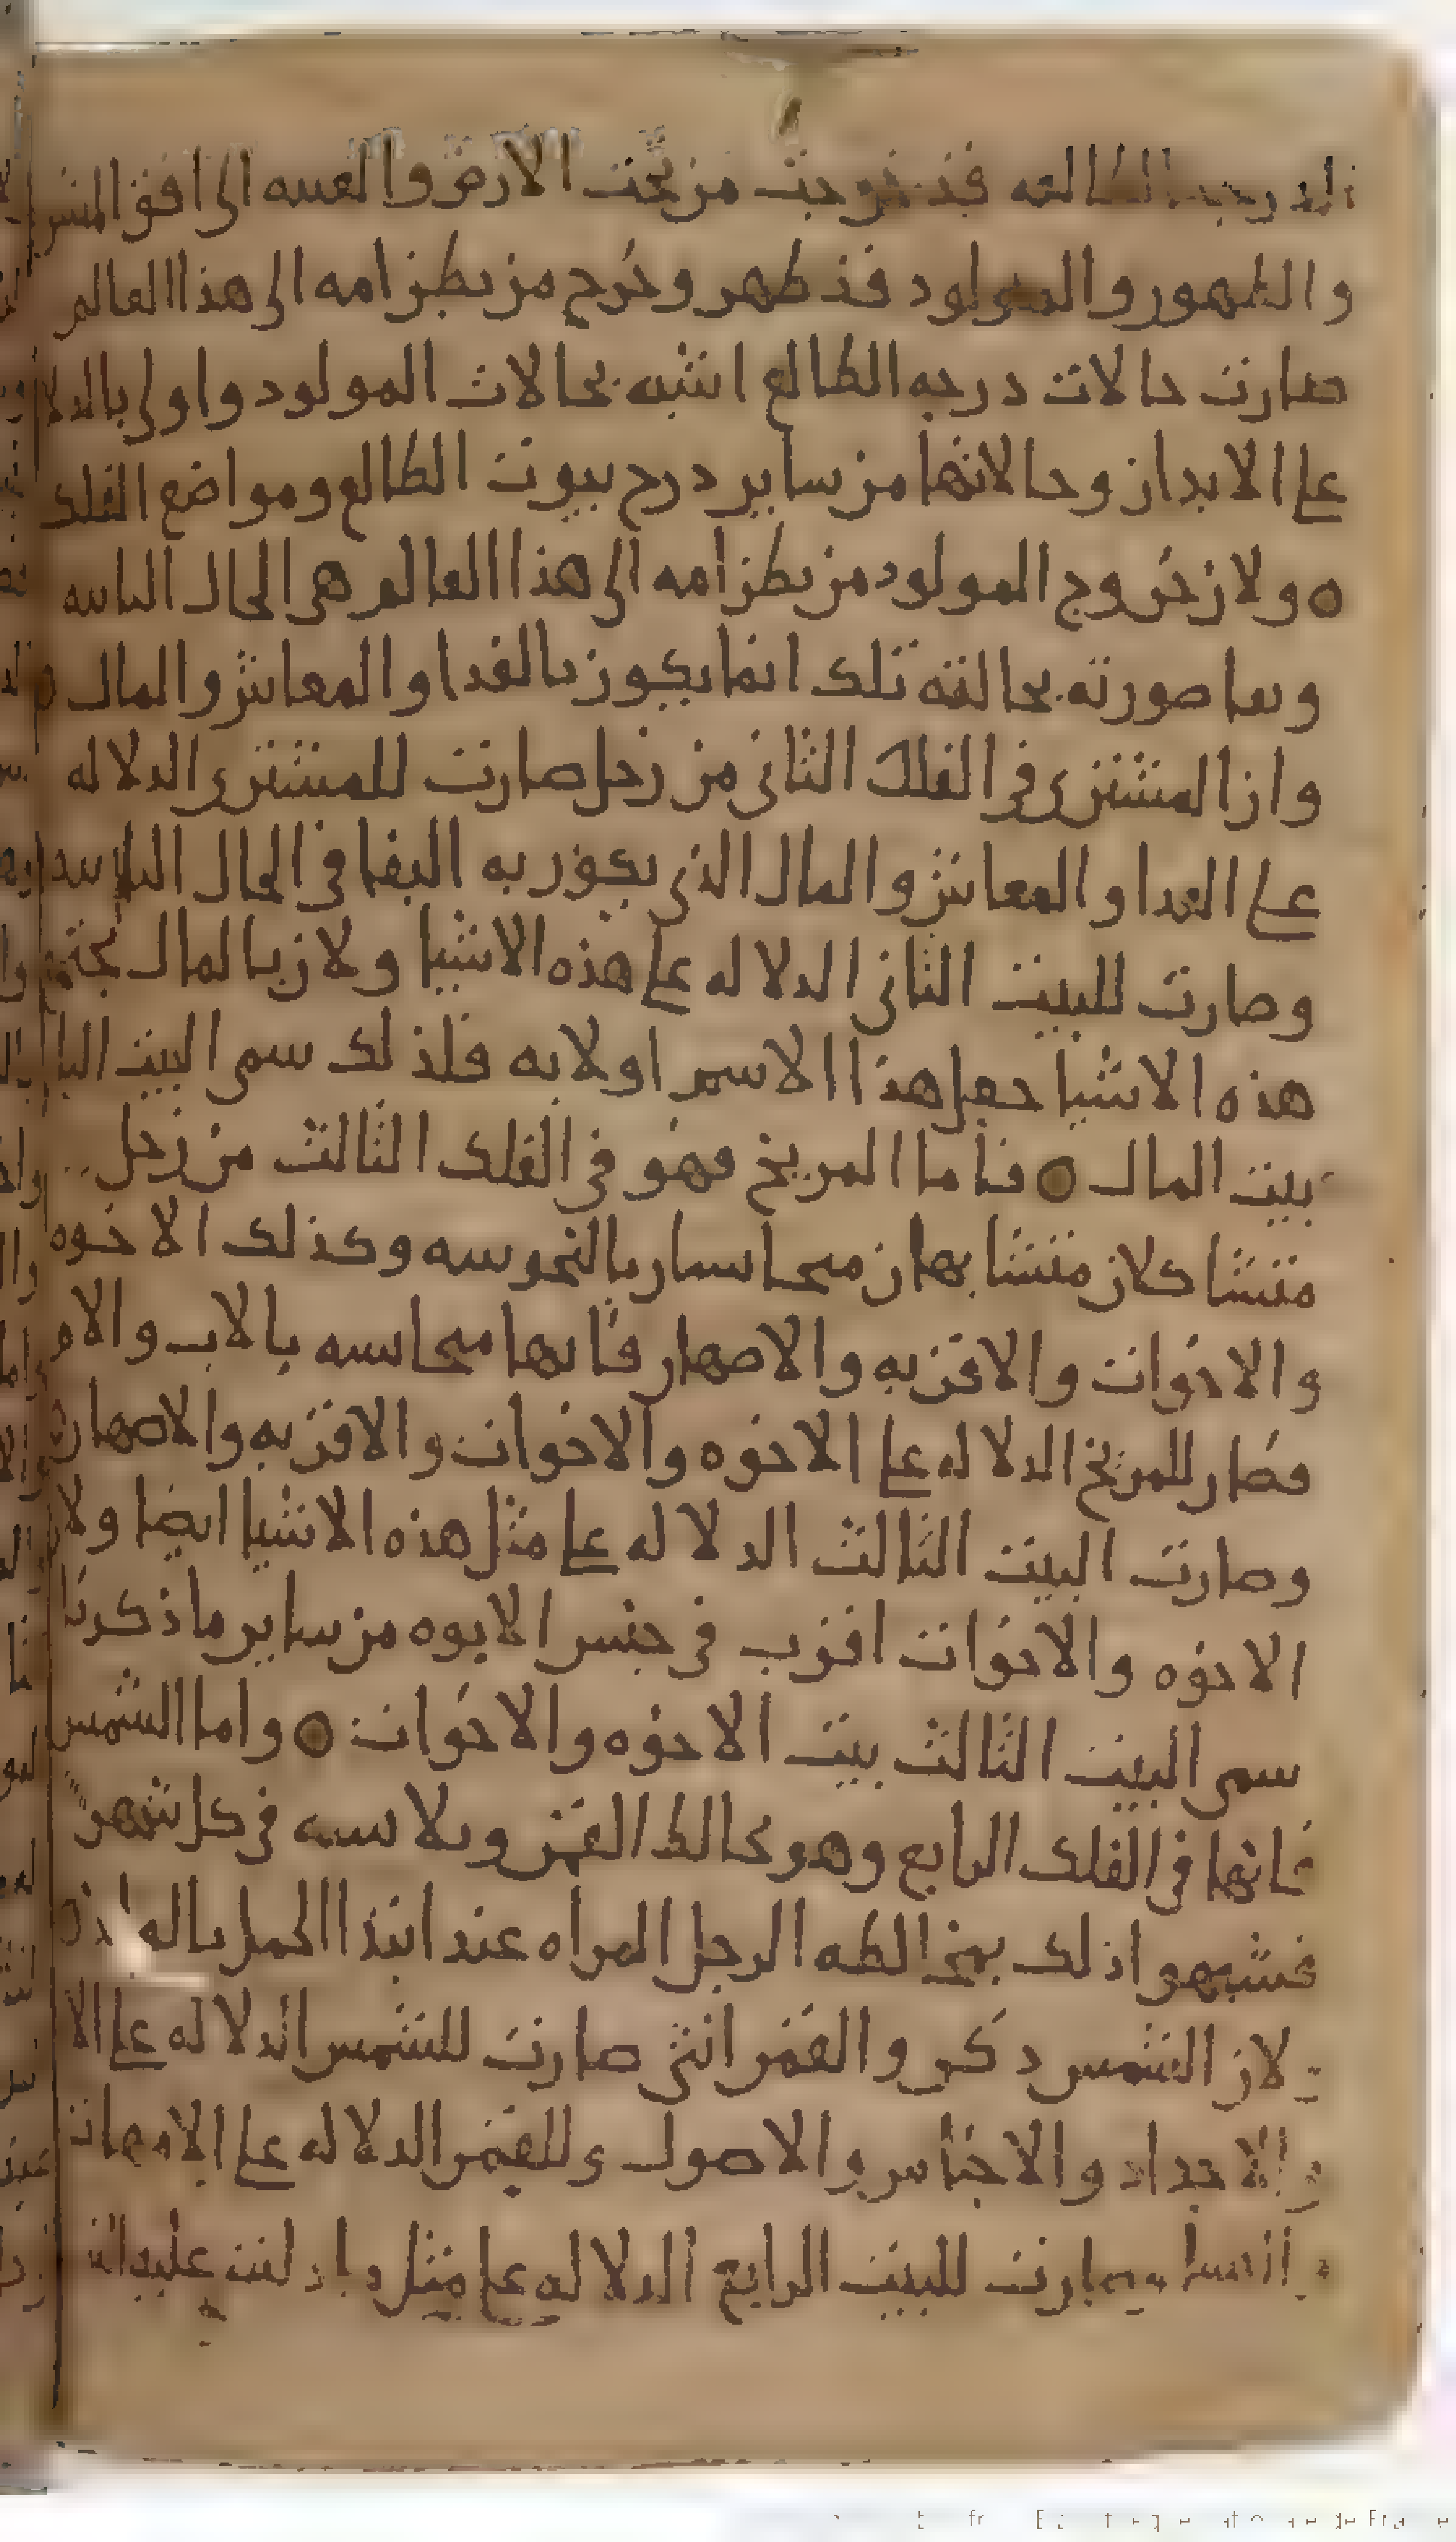 الدرجه الطالعه قد خرجت من تحت الارض والغيبه الى افق المشر
والظهور والمولود قد ظهر وخرج من بطن امه الى هذا العالم
صارت حالات درجه الطالع اشبه بحالات المولود واولى بالدلا
على الابدان وحالاتها من ساير درج بيوت الطالع ومواضع الفلك
ه ولان خروج المولود من بطن امه الى هذا العالم هى الحال الثانيه
وبقا صورته بحالته تلك انما يكون بالغدا والمعاش والمال
وان المشترى فى الفلك الثانى من زحل صارت للمشترى الدلاله
على الغدا والمعاش والمال الذى يكون به البقا فى الحال الثانيه
وصارت للبيت الثانى الدلاله على هذه الاشيا ولان بالمال تجتمع
هذه الاشيا جعل هذا الاسم اولا به فلذلك سمى البيت الثا
بيت المال ه فاما المريخ فهو فى الفلك الثالث من زحل
متشاكلان متشابهان متجانسان بالنحوسه وكذلك الاخوه
والاخوات والاقربه والاصهار فانها متجانسه بالاب والام
فصار للمريخ الدلاله على الاخوه والاخوات والاقربه والاصهار
وصارت البيت الثالث الدلاله على مثل هذه الاشيا ايضا ولان
الاخوه والاخوات اقرب فى جنس الابوه من ساير ما ذكرنا
سمى البيت الثالث بيت الاخوه والاخوات ه واما الشمس
فانها فى الفلك الرابع وهو يخالط القمر ويلابسه فى كل شهر
فشبهوا ذلك بمخالطه الرجل المراه عند ابتدا الحمل بالولاده
ولان الشمس ذكر والقمر انثى صارت للشمس الدلاله على الا
والاجداد والاجناس والاصول وللقمر الدلاله على الامهات
وصارت للبيت الرابع الدلاله على مثل ما دلت عليه